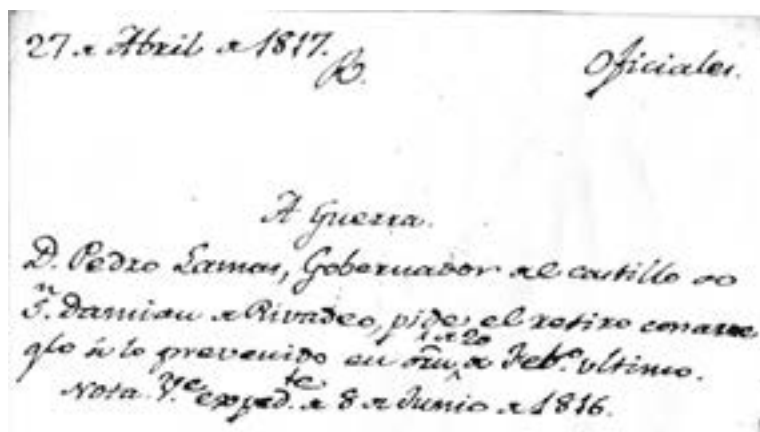 27 de Abril de 1817.
R.
Oficiales.
A Guerra.
D. Pedro Lamas, Gobernador del castillo de
Sn. Damian de Rivadeo, pide el retiro con arre
glo á lo prevenido en de 20 de Febo. ultimo.
Nota. expedte. de 8 de Junio de 1816.